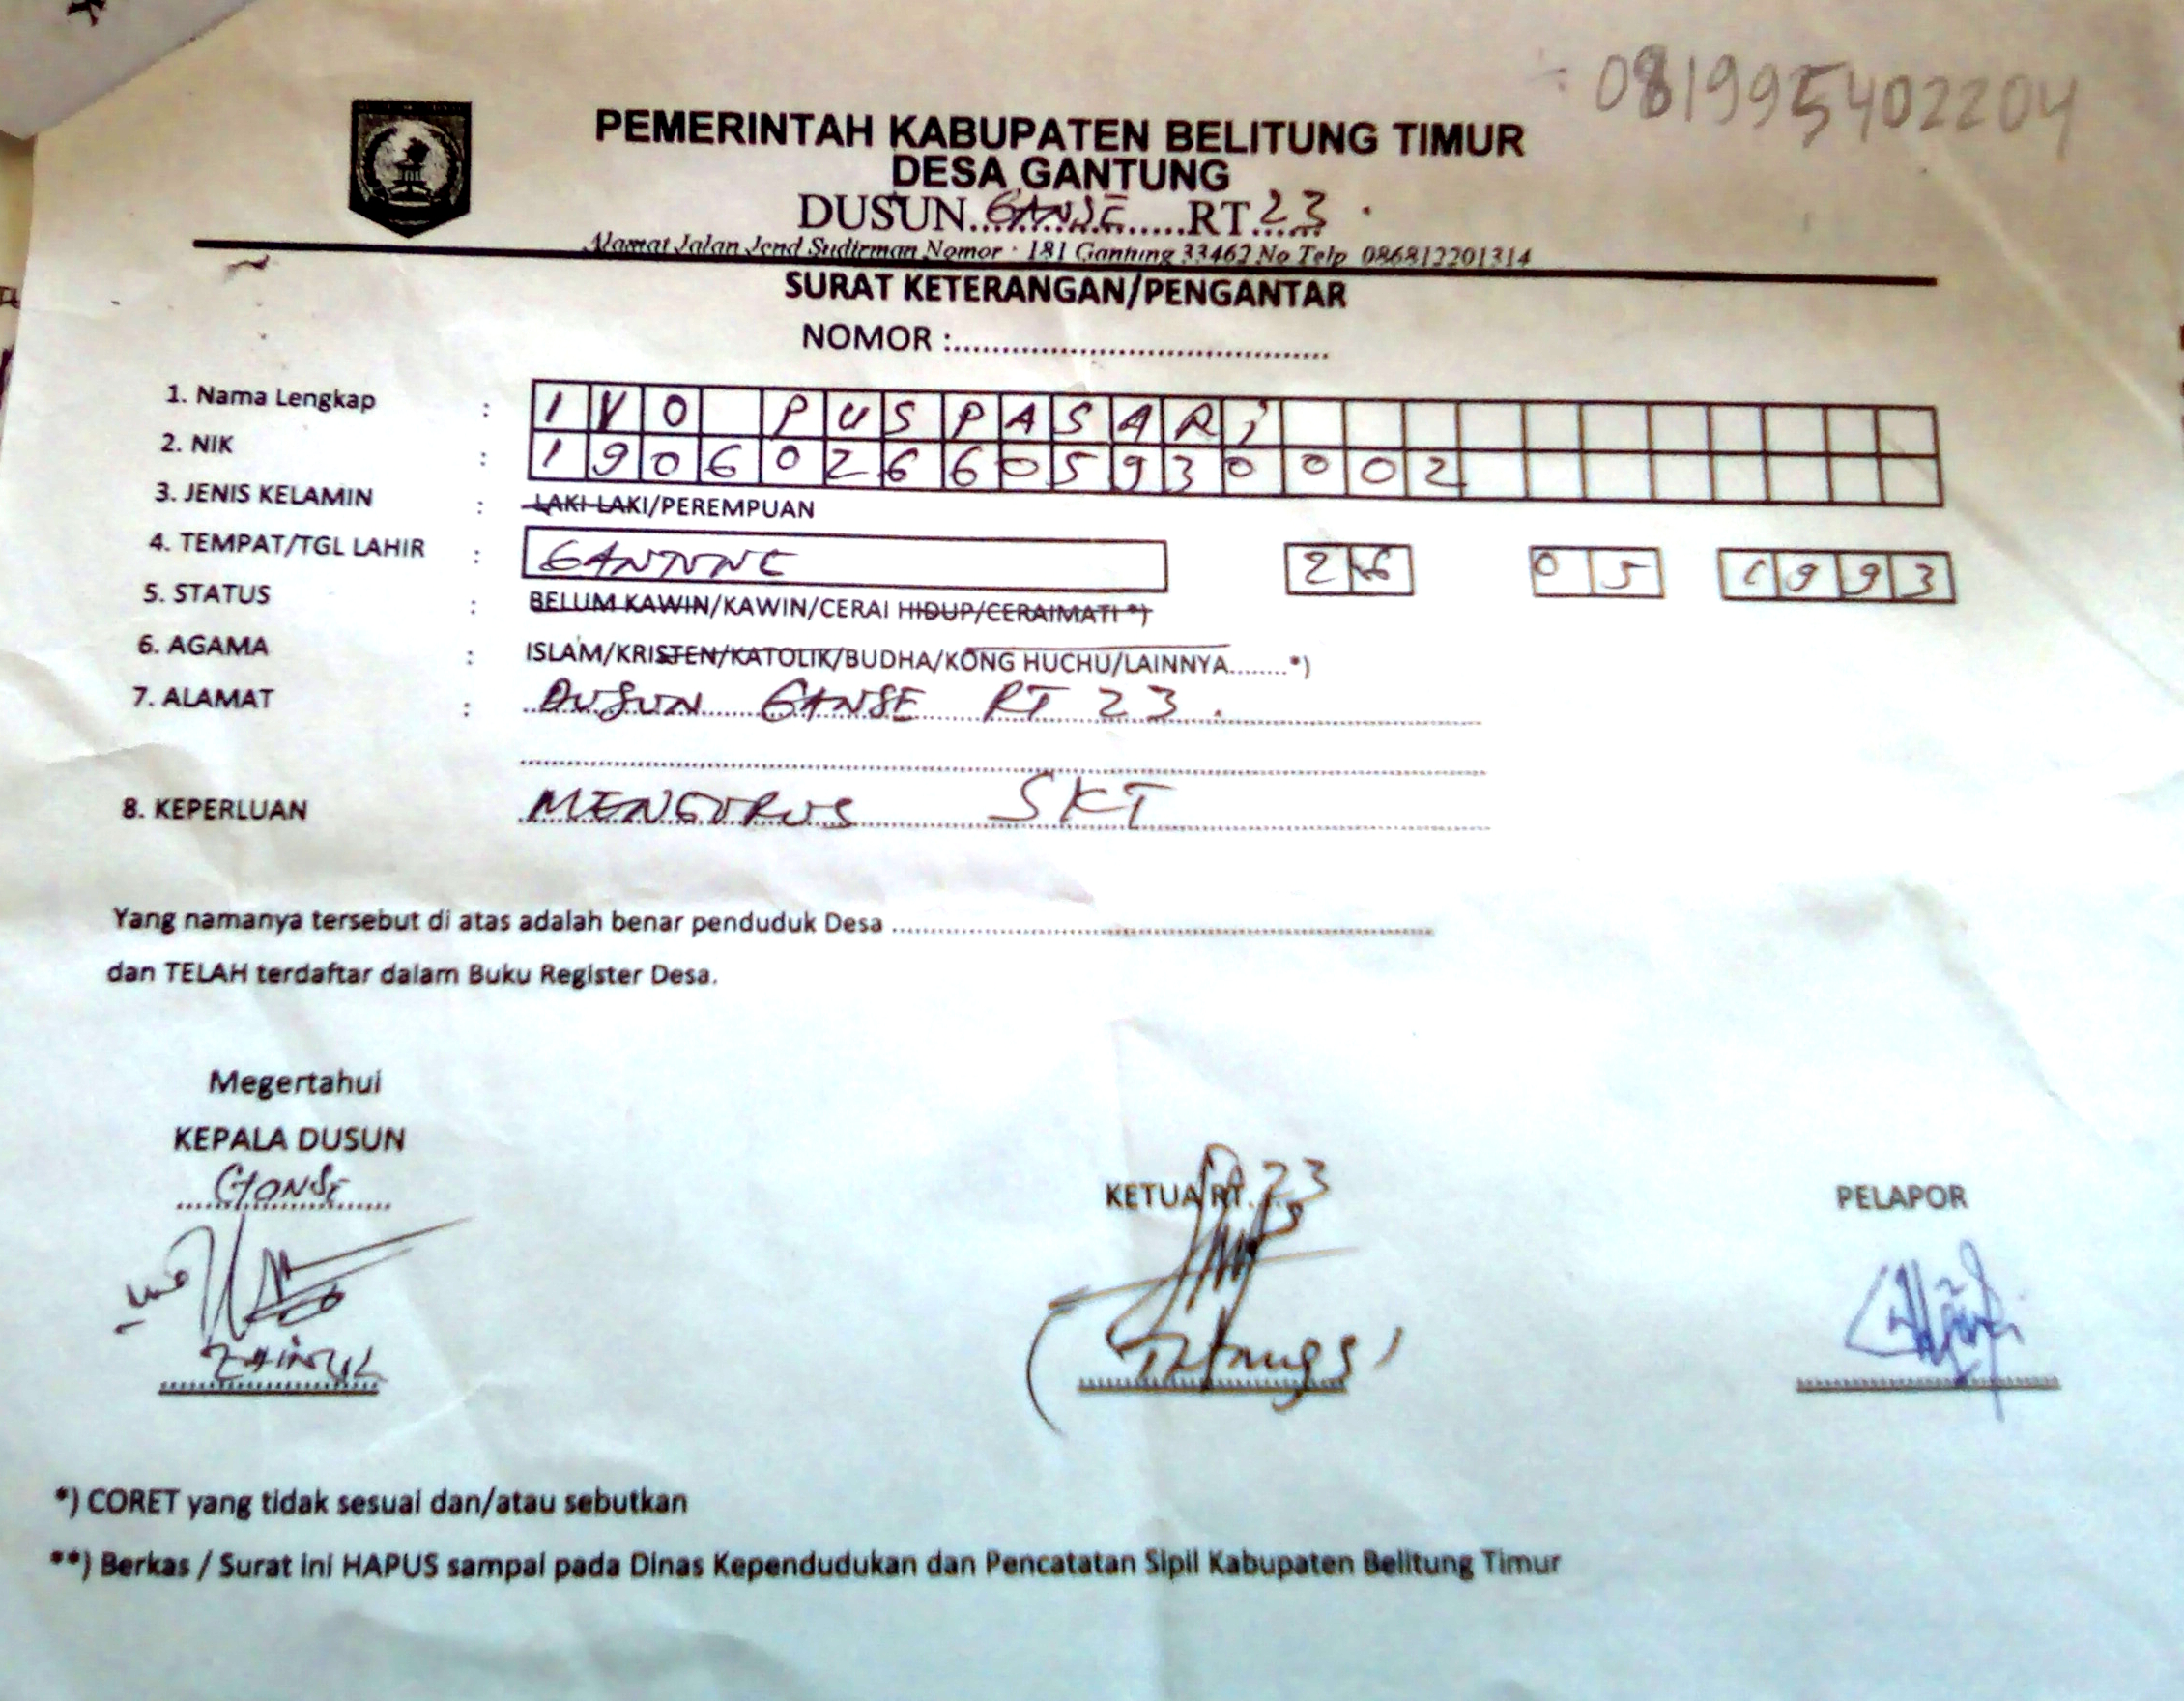 081995402204
PEMERINTAH KABUPATEN BELITUNG TIMUR
DESA GANTUNG
DUSUN..GANSE......RT.23.
Alamat Jalan Jend Sudirman Nomor : 181 Gantung 33462 No Telp 086812201314
SURAT KETERANGAN/PENGANTAR
NOMOR :..........................................
1. Nama Lengkap : IVO PUSPASARi
2. NIK : 1906026605930002
3. JENIS KELAMIN : LAKI-LAKI/PEREMPUAN
4. TEMPAT/TGL LAHIR : GANTUNG 26 05 1993
5. STATUS : BELUM KAWIN/KAWIN/CERAI HIDUP/CERAIMATI *)
6. AGAMA : ISLAM/KRISTEN/KATOLIK/BUDHA/KONG HUCHU/LAINNYA........*)
7. ALAMAT : DUSUN GANSE RT 23.
8. KEPERLUAN MENGURUS SKT
Yang namanya tersebut di atas adalah benar penduduk Desa ..........................................
dan TELAH terdaftar dalam Buku Register Desa.
Megertahui
KEPALA DUSUN
GANSE
KETUA RT. 23
PELAPOR
ZAINUL
*) CORET yang tidak sesuai dan/atau sebutkan
**) Berkas / Surat ini HAPUS sampai pada Dinas Kependudukan dan Pencatatan Sipil Kabupaten Belitung Timur